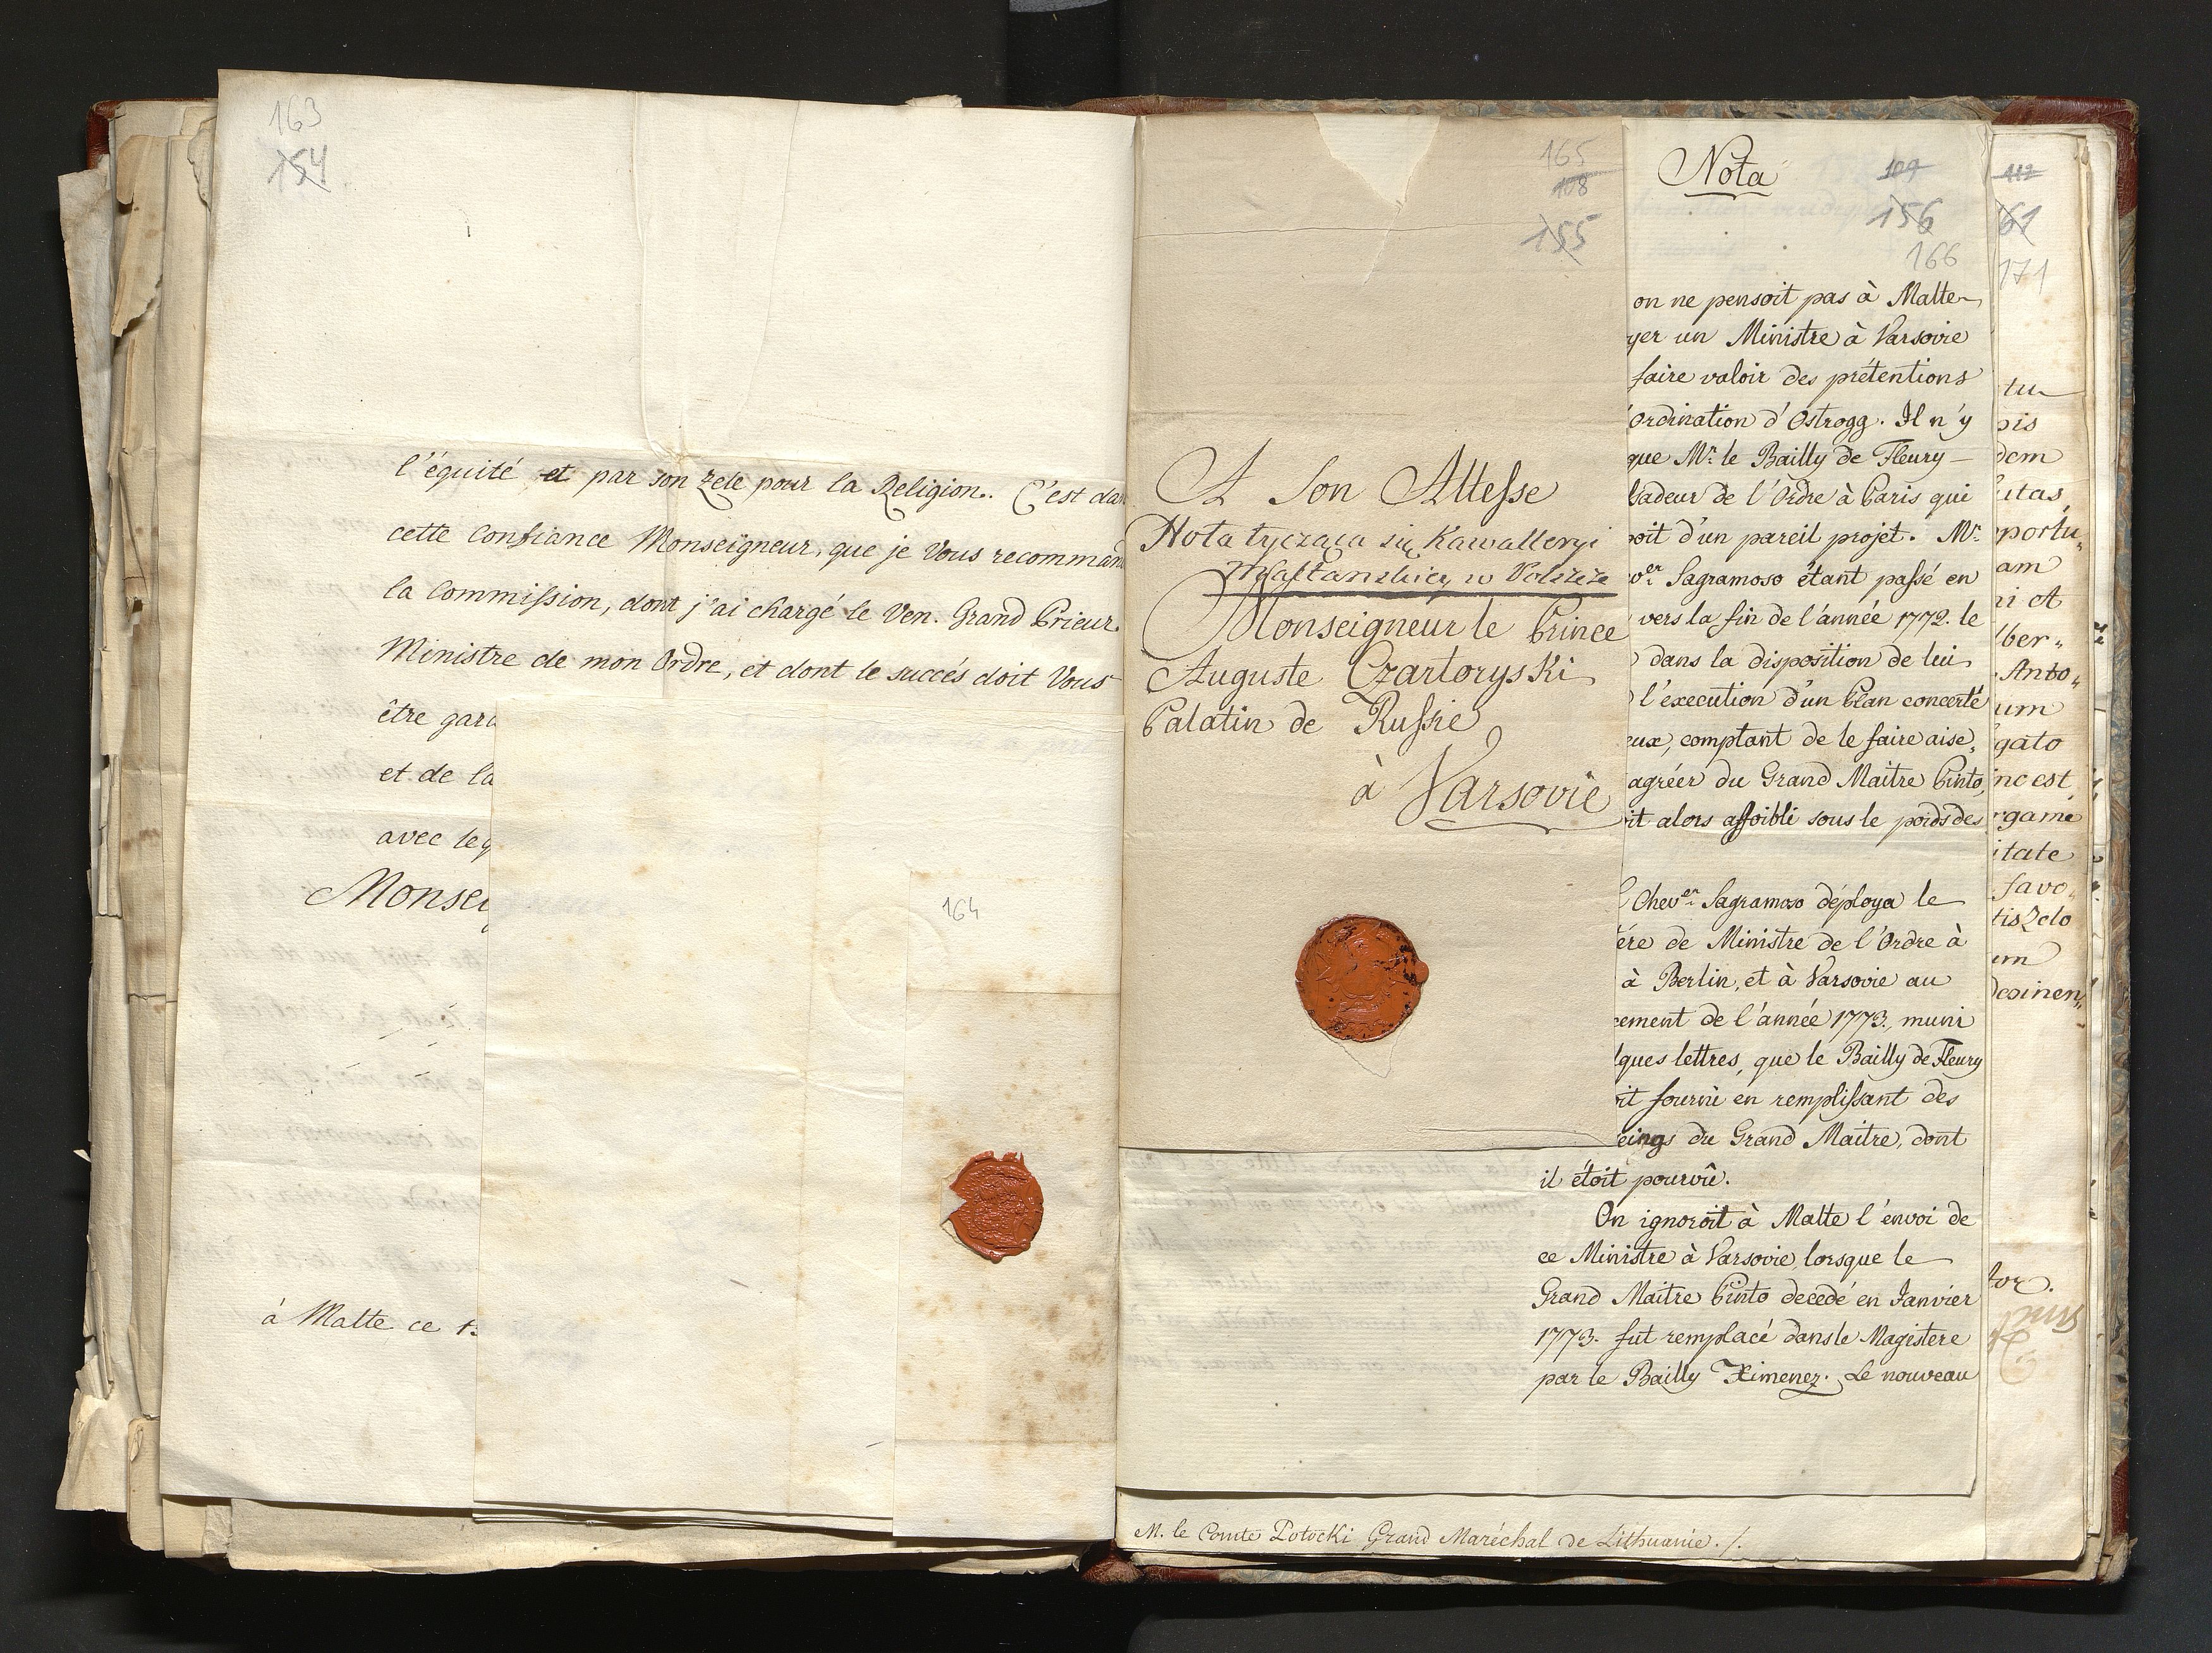 163
154
l'équité et par son zele pour la Religion. C'est dan
cette confiance Monseigneur, que je Vous recomman
la Commission, dont j'ai chargé le Ven. Grand Prieur
Ministre de mon Ordre, et dont le succés doit Vous
être gara
et de la
avec leq
Monseig
à Malte ce
164
165
108
155
A Son Altesse
Nota tycząca się Kawalleryi
Maltanskiey w Polszcze
Monseigneur le Prince
Auguste Czartoryski
Palatin de Russie
à Varsovie
Nota
109
156
166
on ne pensoit pas à Malte
yer un Ministre à Varsovie
faire valoir des prétentions
ordination d'Ostrogg. Il n'y
que Mr. le Bailly de Fleury
badeur de l'Ordre à Paris qui
oit d'un pareil projet. Mr.
ver. Sagramoso étant passé en
vers la fin de l'année 1772. le
dans la disposition de lui
l'execution d'un Plan concerté
eux, comptant de le faire aise,
agréer du Grand Maitre Pinto,
it alors affoibli sous le poids des
Chever. Sagramoso déploya le
ére de Ministre de l'Ordre à
à Berlin, et à Varsovie au
cement de l'année 1773., muni
lques lettres, que le Bailly de Fleury
it fourni en remplissant des
eings du Grand Maitre, dont
il étoit pourvû.
On ignoroit à Malte l'envoi de
ce Ministre à Varsovie, lorsque le
Grand Maitre Pinto decedé en Janvier
1773. fut remplacé dans le Magistere
par le Bailly Ximenez. Le nouveau
M. le Comte Potocki Grand Maréchal de Lithuanie. /.
112
161
171
tu
bis
dem
utas,
portu„
am
ni et
ber„
Anto„
um
gato
inc est,
game
itate
favo„
tis Zelo
um
tor.